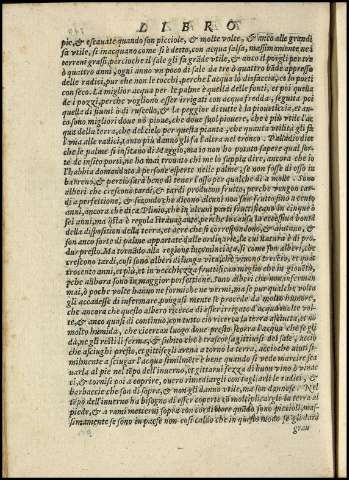 LIBRO
pie, & escauate quando son picciole, & molte volte, & anco alle grandi
fa vtile, si inacquano come si è detto, con acqua salsa, massimamente ne i
terreni grassi, percioche il sale gli fa grāde vtile, & anco il porgli per tre
ò quattro anni, ogni anno vn poco di sale da tre ò quattro bāde appresso
delle radici, pur che non le tocchi, perche l'acqua lo disfaccia, et lo porti
con seco. La miglior acqua per le palme è quella delle fonti, et poi quella
de i pozzi, perche vogliono esser irrigati con acqua fredda, seguita poi
quella di fiumi ò di ruscello, & la peggior di tutte è la piouitilezia, et an-
co sono migliori doue nō pioue, che doue suol piouere, che è più vtile l'ac
qua della terra, che del cielo per questa pianta, che quanta vtilità gli fa
l'una alle radici, tanto più danno gli fa l'altra nel tronco. Palladio dice
che le palme si insitano di Maggio, ma io non ho potuto sapere qual sor
te de insito porsi, ne ho mai trouato chi me lo sappia dire, ancora che io
l'habbia domandato à persone esperte nelle palme, se non fosse di osso in
barreno, & perciò sarà bene di tener l'osso per qualche dì a molle. Sono
alberi che crescono tardi, & tardi producono frutto, perche vengon tar-
di a perfettione, & secondo che dicono alcuni non fan frutto sino a cento
anni, ancora che dica Plinio, che in alcuni paesi fruttificano in cinque ò
sei anni, ma questa è regola strauagante, perche lo causa la eccessiua bontà
della disposition della terra, et aere che si correspondono, & aiutano, &
son anco sorte di palme appartate dall'ordinarie, le cui natura è di pro-
dur presto. Ma tornādo alla ragione incominciata, sì come son alberi, che
crescono tardi, così sono alberi di lunga vita, che viuono trecēto, et quat
trocento anni, et più, et in vecchiezza fruttificano meglio che in giouētù,
perche alhora sono in maggior perfettione. Sono alberi che non infermano
mai, ò poche volte hanno ne formiche ne vermi, ma se pur qualche volta
gli accadesse di infermare, pusgali mente se procede da molto humore,
che ancora che questo albero ricerca di esser irrigato d'acqua molte vol-
te, & anco quasi di continuo, non tutto ciò ricerca la terra asciutta, et nō
molto humida, che cierca in luogo doue presto scorra l'acqua che se gli
dà, ne gli resti lì ferma, & subito che è trascorsa gittinsi del sale, accio
che asciughi presto, et gittisegli arena a torno la terra, accioche aiuti si-
milmente a asciugar l'acqua similmēte è bene quando si vede marcire sca
uarla al pie nel tēpo dell'inuerno, et gittarui fezza di buon vino ò vinac
ci, & tornisi poi a coprire, ouero rimettangli con tagliarli le radici, &
barbaccie che san di sopra, & non gli danno vtile, ma san dannose. Nel
tēpo dell'inuerno ha bisogno di esser coperto cō moltiplicargli la terra al
piede, & a rami mettersi sopra con cordi sbore quādo sono piccioli, mas-
simamente se sono in paese non così caldo che in questo modo se gli darà
gran